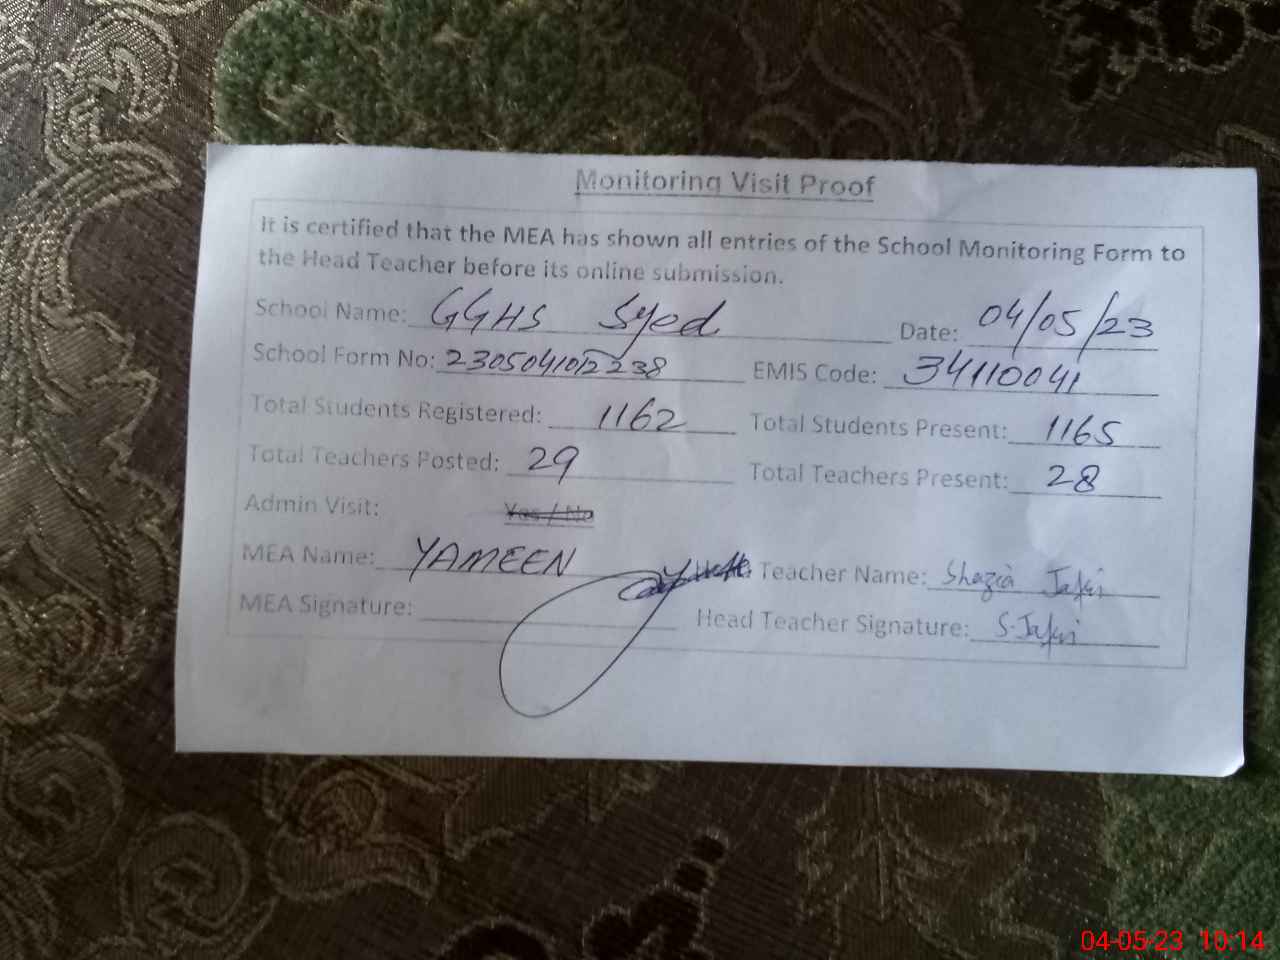 Monitoring Visit Proof
It is certified that the MEA has shown all entries of the School Monitoring Form to
the Head Teacher before its online submission.
School Name: GGHS Syed Date: 04/05/23
School Form No: 2305041012238 EMIS Code: 34110041
Total Students Registered: 1162 Total Students Present: 1165
Total Teachers Posted: 29 Total Teachers Present: 28
Admin Visit: Yes / No
MEA Name: YAMEEN Teacher Name: Shazia Jafri
MEA Signature: Head Teacher Signature: S.Jafri
04-05-23 10:14